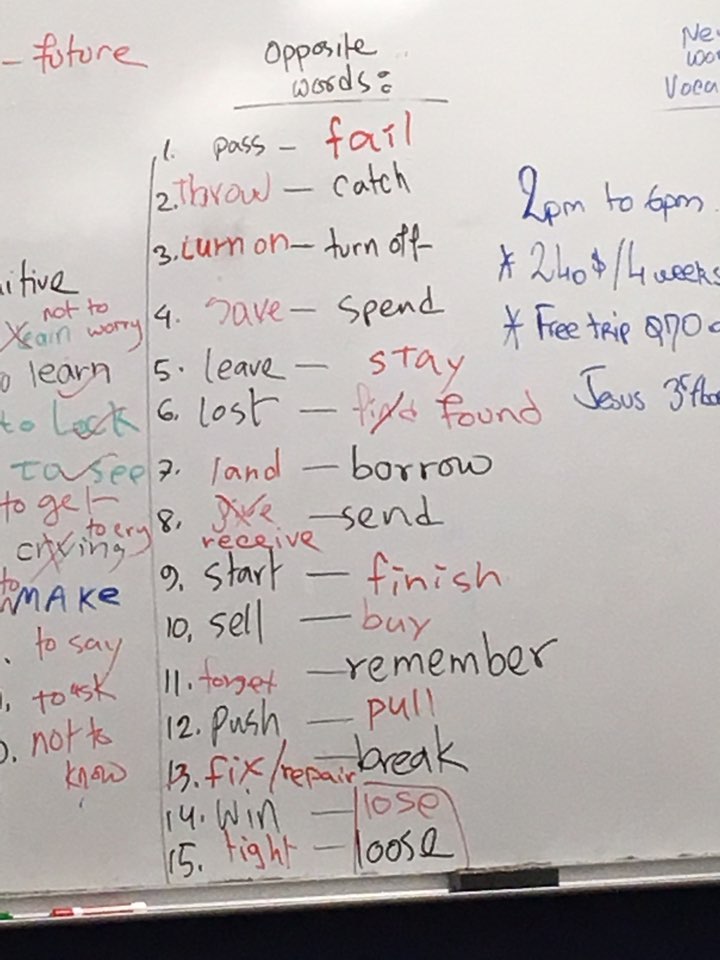 - future
Opposite
words:
1. pass - fail
2. Throw - catch
3. turn on - turn off
4. save - spend
5. leave - stay
6. lost - find found
7. land - borrow
8. give - send
receive
9. start - finish
10, sell - buy
11. forget - remember
12. push - pull
13. fix/repair - break
14. win - lose
15. tight - loose
not to
worry
learn
to lock
to see
to get
to cry
crying
to
MAKE
to say
to ask
not to
know
2pm to 6pm
* 240$/4 weeks
* Free trip
Jesus